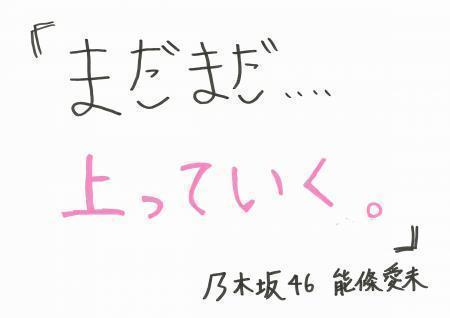 『まだまだ....
上っていく。』
乃木坂46 能條愛未